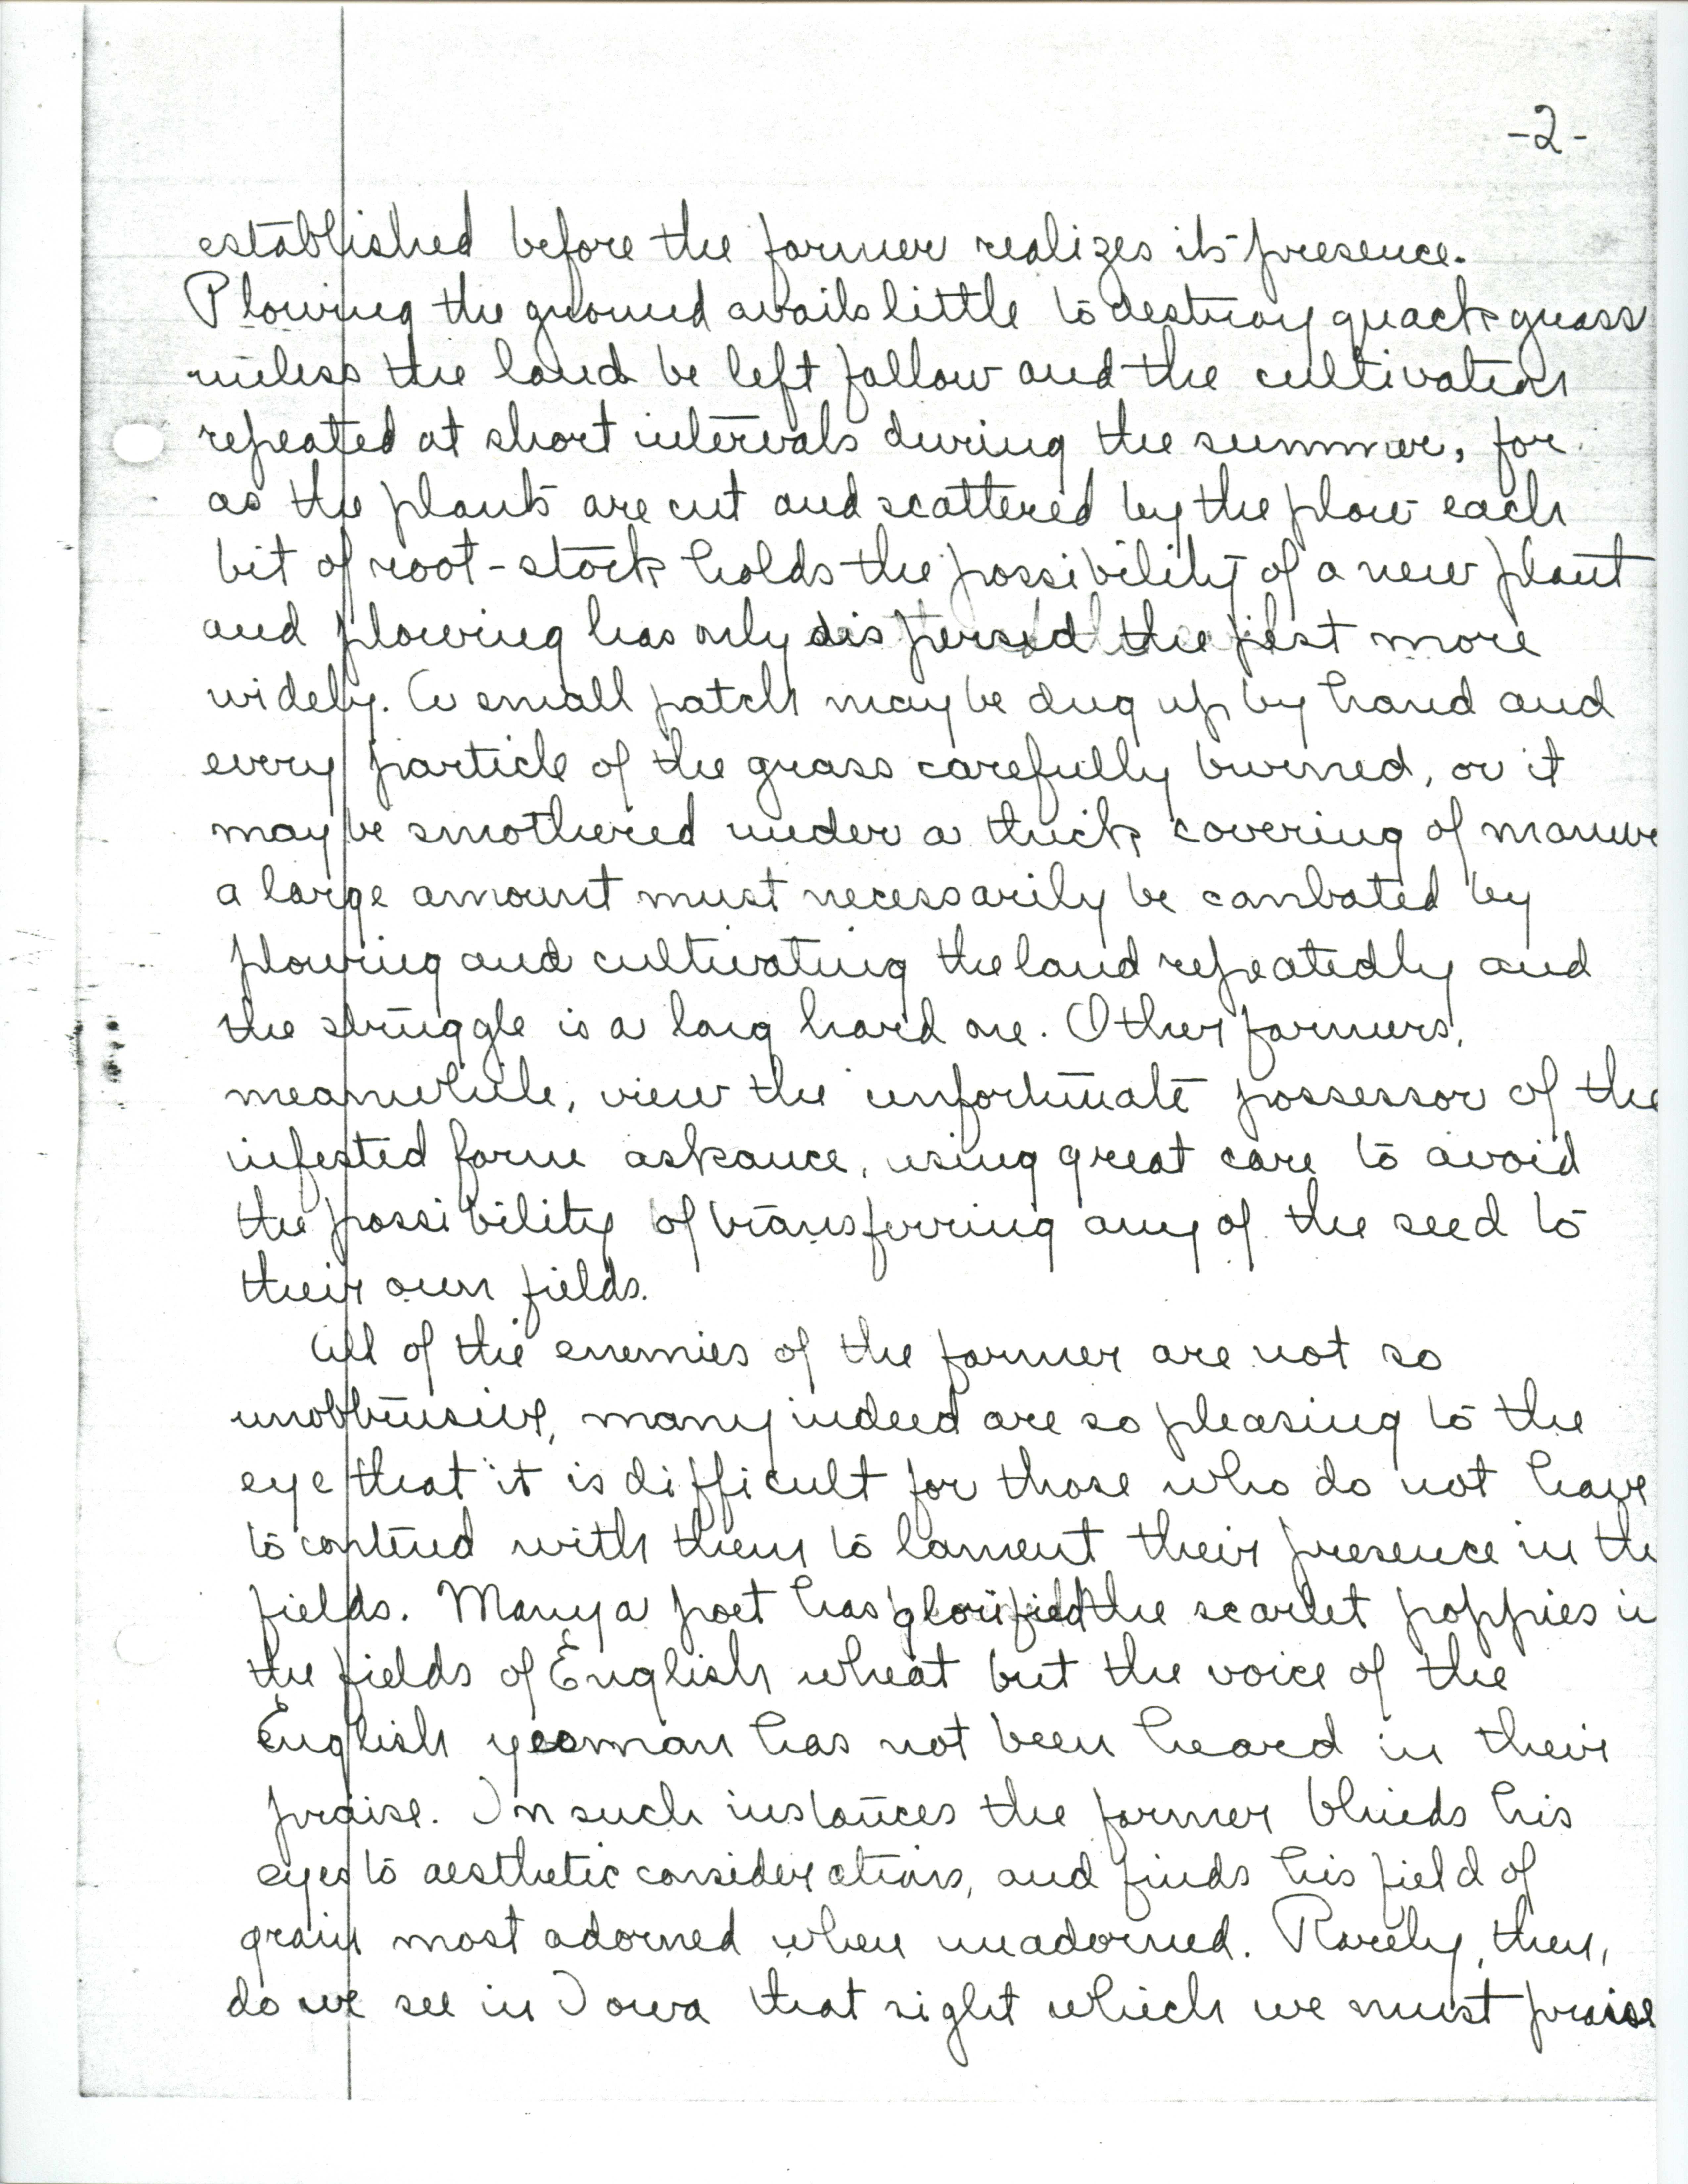 -2-
established before the farmer realizes its presence.
Plowing the ground avails little to destroy quack grass
unless the land be left fallow and the cultivation
repeated at short intervals during the summer, for
as the plants are cut and scattered by the plow each
bit of root-stock holds the possibility of a new plant
and plowing has only dispersed the pest more
widely. A small patch may be dug up by hand and
every particle of the grass carefully burned, or it
may be smothered under a thick covering of manure
a large amount must necessarily be combated by
plowing and cultivating the land repeatedly and
the struggle is a long hard one. Other farmers,
meanwhile, view the unfortunate possessor of the
infested farm askance, using great care to avoid
the possibility of transferring any of the seed to
their own fields.
All of the enemies of the farmer are not so
unobtrusive, many indeed are so pleasing to the
eye that it is difficult for those who do not have
to contend with them to lament their presence in the
fields. Many a poet has glorified the scarlet poppies in
the fields of English wheat but the voice of the
English yeoman has not been heard in their
praise. In such instances the farmer blinds his
eyes to aesthetic considerations, and finds his field of
grain most adorned when unadorned. Rarely, then,
do we see in Iowa that sight which we must praise